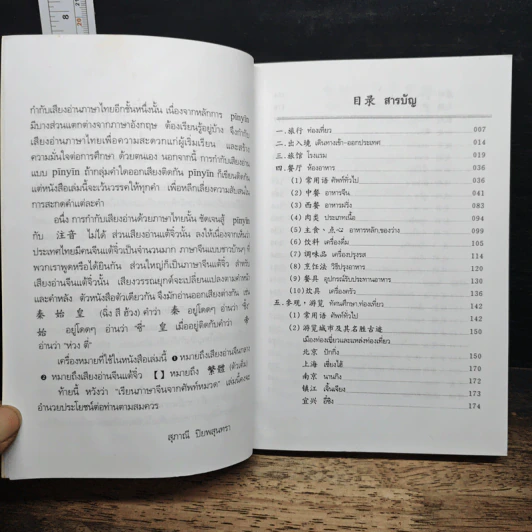 กำกับเสียงอ่านภาษาไทยอีกชั้นหนึ่ง เนื่องจากหลักการ pinyin
มีบางส่วนแตกต่างจากภาษาอังกฤษ ต้องเรียนรู้อยู่บ้าง จึงกำกับ
เสียงอ่านภาษาไทยเพื่อความสะดวกแก่ผู้เริ่มเรียน และสร้าง
ความมั่นใจต่อการศึกษา ด้วยตนเอง นอกจากนี้ การกำกับเสียงอ่าน
แบบ pinyin ถ้ากลุ่มคำใดออกเสียงติดกัน pinyin ก็เขียนติดกัน
แต่หนังสือเล่มนี้จะเว้นวรรคให้ทุกคำ เพื่อหลีกเลี่ยงความสับสนใน
การสะกดคำแต่ละคำ
อนึ่ง การกำกับเสียงอ่านด้วยภาษาไทยนั้น ชัดเจนสู้ pinyin
กับ 注音 ไม่ได้ ส่วนเสียงอ่านแต้จิ๋วนั้น ลงให้เนื่องจากเห็นว่า
ประเทศไทยมีคนจีนแต้จิ๋วเป็นจำนวนมาก ภาษาจีนแบบชาวบ้านๆ ที่
พวกเราพูดหรือได้ยินกัน ส่วนใหญ่ก็เป็นภาษาจีนแต้จิ๋ว สำหรับ
เสียงอ่านจีนแต้จิ๋วนั้น เสียงวรรณยุกต์จะเปลี่ยนแปลงตามคำหน้า
และคำหลัง ตัวหนังสือตัวเดียวกัน จึงมักอ่านออกเสียงต่างกัน เช่น
秦 始 皇 (ฉิ่ง สี ฮ้วง) คำว่า 秦 อยู่โดดๆ อ่านว่า
始 อยู่โดดๆ อ่านว่า 皇 เมื่ออยู่ติดกับคำว่า
อ่านว่า "ห่วง ตี่"
เครื่องหมายที่ใช้ในหนังสือเล่มนี้ ❶ หมายถึงเสียงอ่านจีนกลาง
❷ หมายถึงเสียงอ่านจีนแต้จิ๋ว 【 】 หมายถึง 繁體 (ตัวเต็ม)
ท้ายนี้ หวังว่า "เรียนภาษาจีนจากศัพท์หมวด" เล่มนี้คงจะ
อำนวยประโยชน์ต่อท่านตามสมควร
สุภาณี ปิยพสุนทรา
目录 สารบัญ
一.旅行 ท่องเที่ยว 007
二.出入境 เดินทางเข้า-ออกประเทศ 014
三.旅馆 โรงแรม 023
四.餐厅 ห้องอาหาร 036
(1) 常用语 ศัพท์ทั่วไป 036
(2) 中餐 อาหารจีน 041
(3) 西餐 อาหารฝรั่ง 090
(4) 肉类 ประเภทเนื้อ 094
(5) 主食・点心 อาหารหลัก,ของว่าง 099
(6) 饮料 เครื่องดื่ม
(7) 调味品 เครื่องปรุงรส
(8) 烹饪法 วิธีปรุงอาหาร
(9) 餐具 อุปกรณ์รับประทานอาหาร
(10) 炊具 เครื่องครัว
五.参观，游览 ทัศนศึกษา,ท่องเที่ยว
(1) 常用语 ศัพท์ทั่วไป
(2) 游览城市及其名胜古迹
เมืองท่องเที่ยวและแหล่งท่องเที่ยว
北京 ปักกิ่ง 150
上海 เซี่ยงไฮ้
南京 นานกิง
镇江 เจิ้นเจียง
宜兴 อี๋ซิง 174